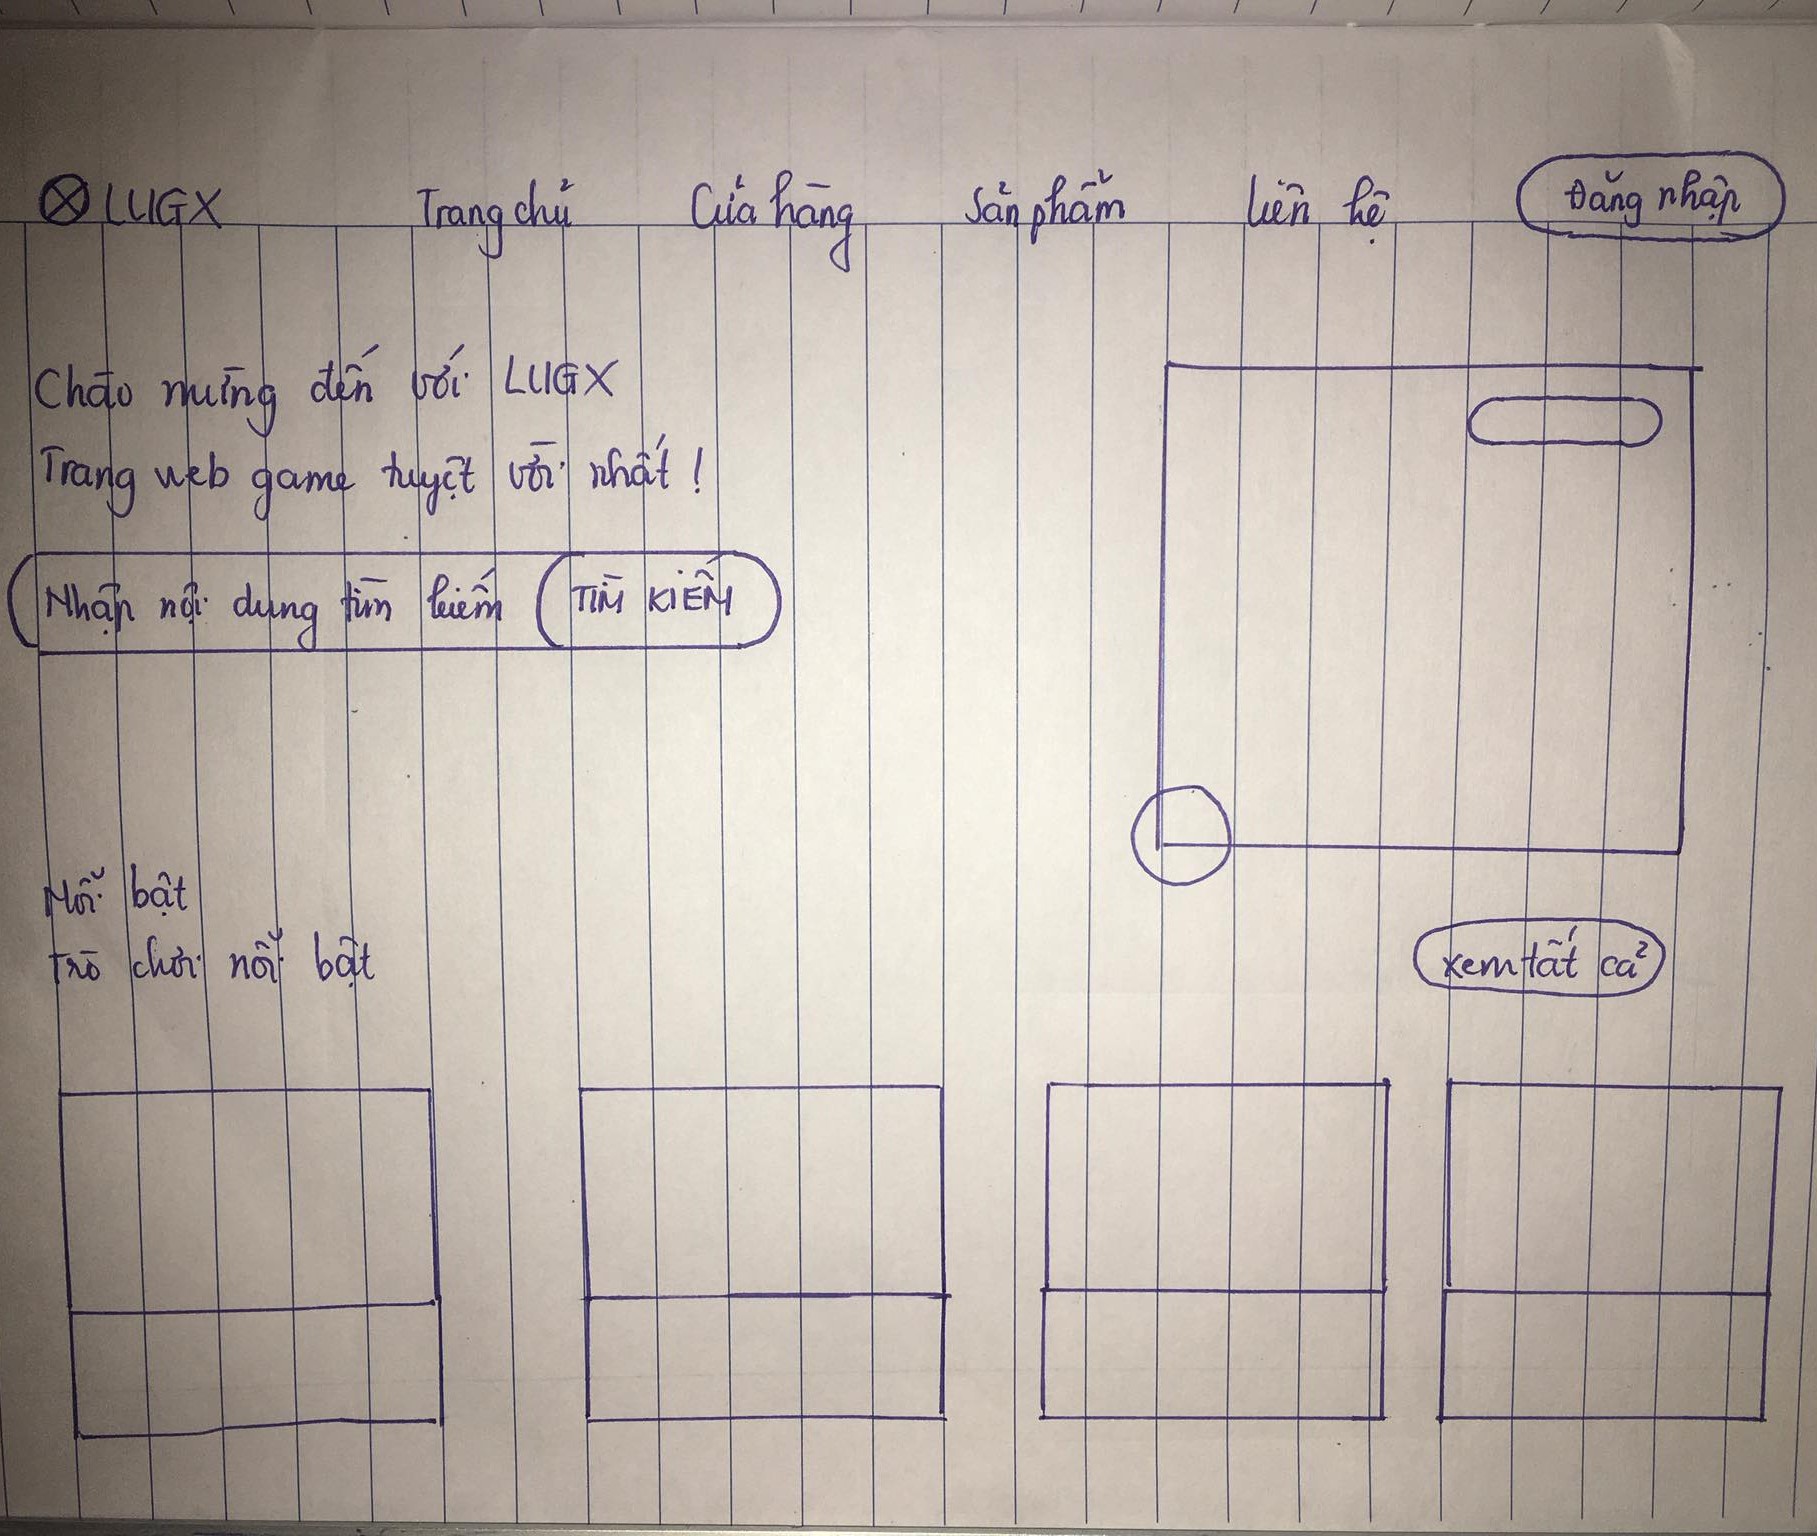 LUGX Trang chủ Cửa hàng Sản phẩm Liên hệ Đăng nhập
Chào mừng đến với LUGX
Trang web game tuyệt vời nhất !
Nhập nội dung tìm kiếm TÌM KIẾM
Nổi bật
Trò chơi nổi bật
xem tất cả